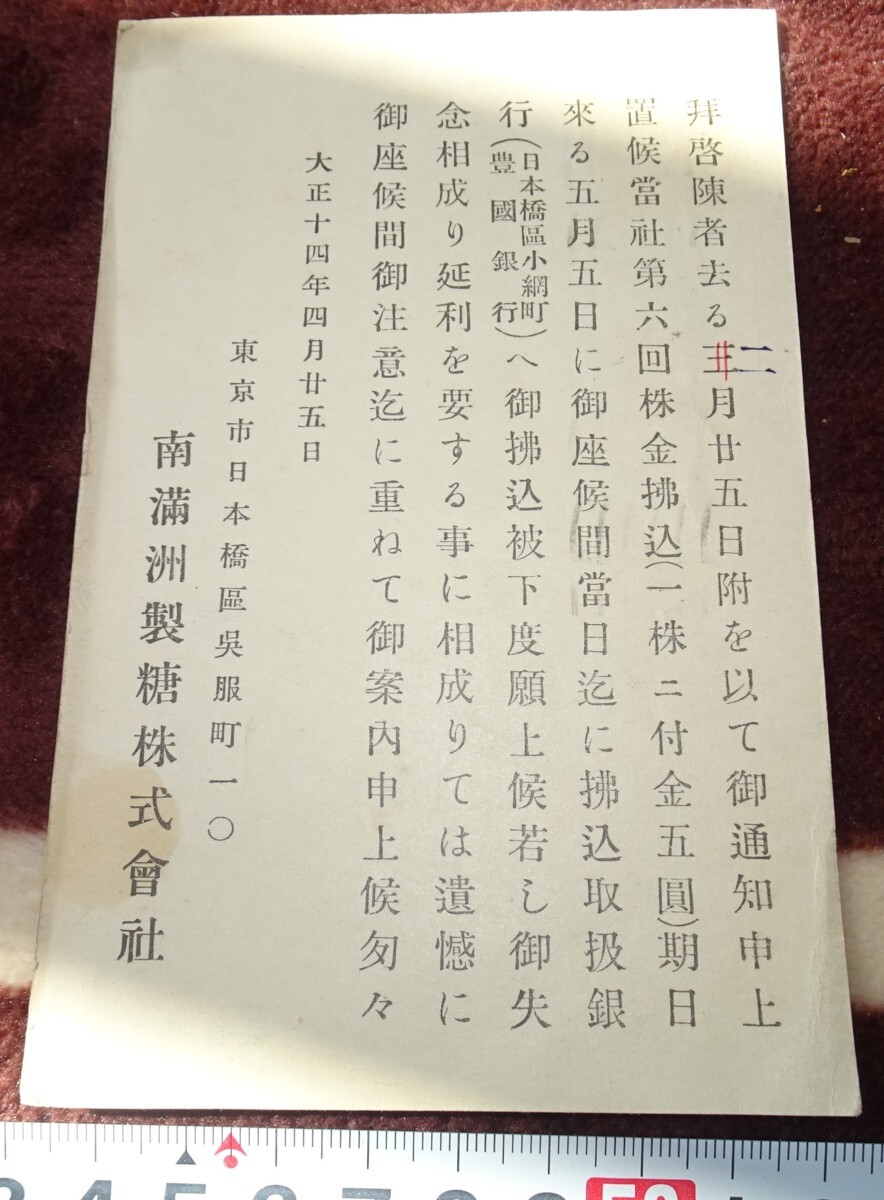 拜啓陳者去る三月廿五日附を以て御通知申上
二
置候當社第六回株金拂込(一株ニ付金五圓)期日
來る五月五日に御座候間當日迄に拂込取扱銀
行(日本橋區小網町豐國銀行)へ御拂込被下度願上候若し御失
念相成り延利を要する事に相成りては遺憾に
御座候間御注意迄に重ねて御案內申上候匆々
大正十四年四月廿五日
東京市日本橋區吳服町一〇
南滿洲製糖株式會社
3 4 5 6 7 8 9 50 1